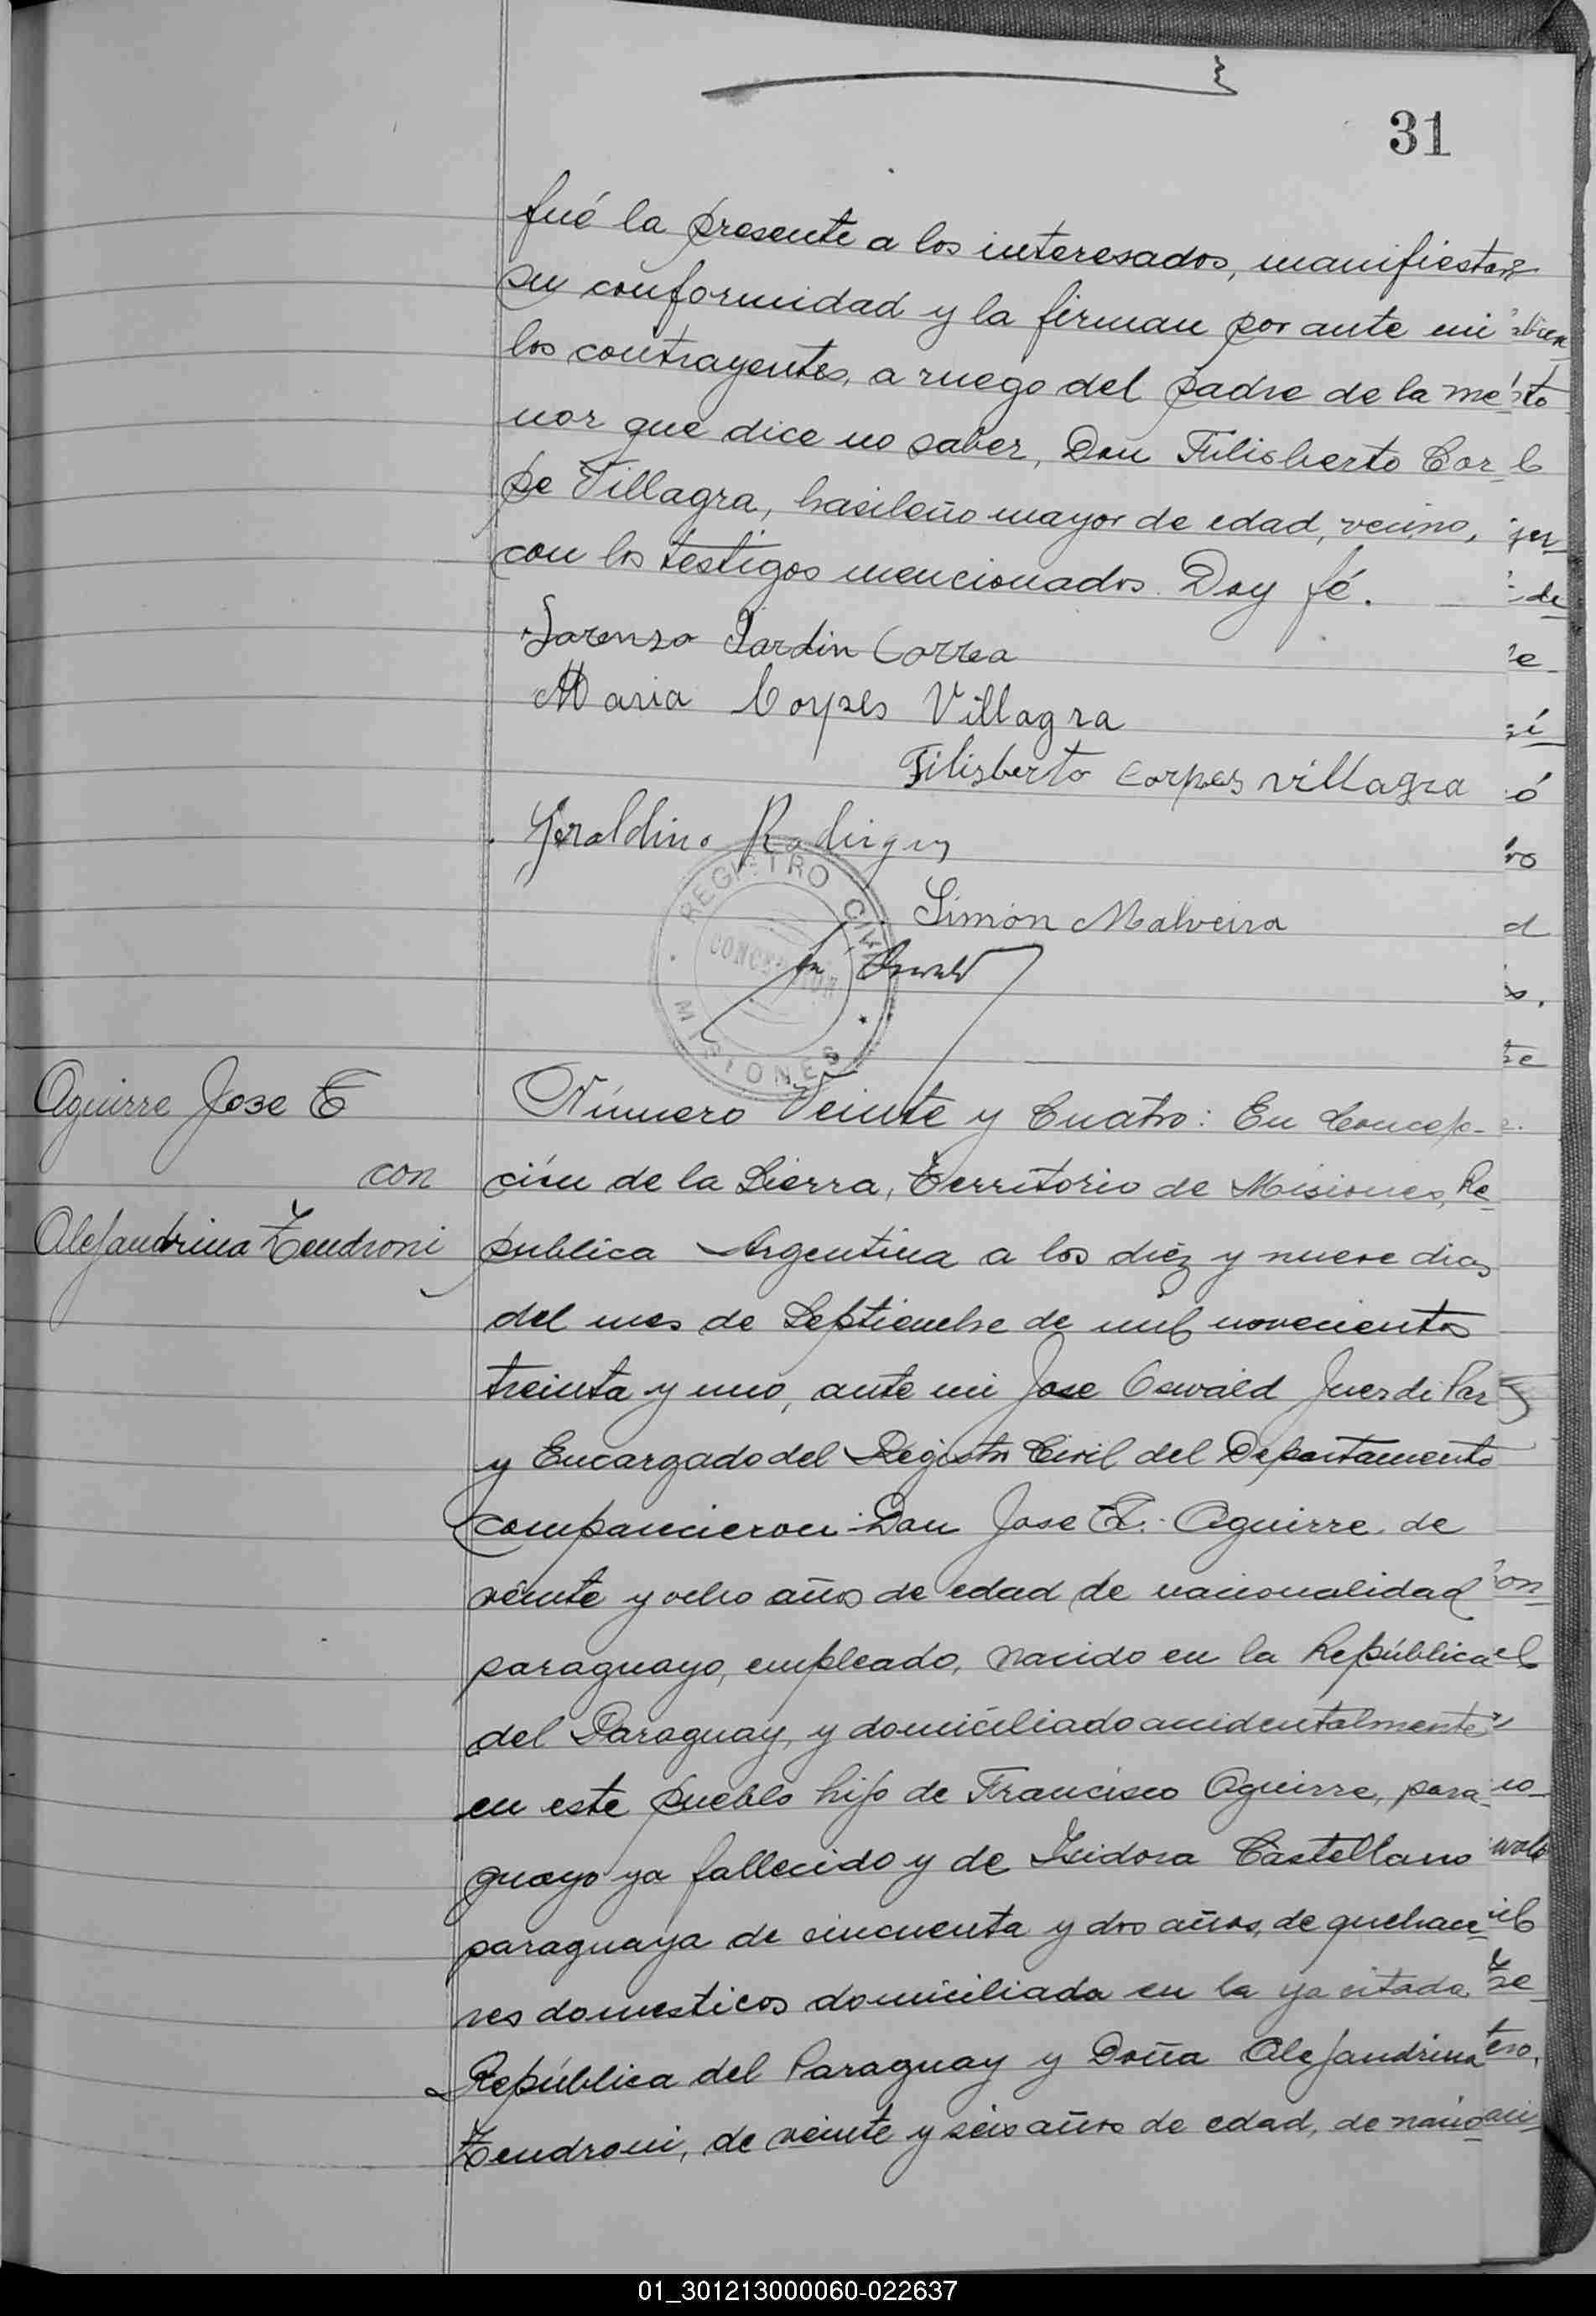 31
fué la presente a los interesados, manifiestan
su conformidad y la firman por ante mi
los contrayentes, a ruego del padre de la me-
nor que dice no saber, Don Filisberto Cor-
pe Villagra, brasileño mayor de edad, vecino,
con los testigos mencionados. Doy fé.
Lorenzo Jardin Correa
Maria Corpes Villagra
Filisberto Corpes villagra
Geraldino Rodrigues
Simón Malveira
REGISTRO CIVIL
CONCEPCION
MISIONES
Oswald
Aguirre Jose E
con
Alejandrina Zendroni
Número Veinte y Cuatro: En Concep-
ción de la Sierra, Territorio de Misiones, Re-
publica Argentina a los diéz y nueve dias
del mes de Septiembre de mil novecientos
treinta y uno, ante mi Jose Oswald Juez de Paz
y Encargado del Registro Civil del Departamento
comparecieron: Don Jose E. Aguirre de
veinte y ocho años de edad de nacionalidad
paraguayo, empleado, nacido en la República
del Paraguay, y domiciliado accidentalmente
en este pueblo hijo de Francisco Aguirre, para-
guayo ya fallecido y de Isidora Castellano
paraguaya de cincuenta y dos años, de quehace-
res domesticos domiciliada en la ya citada
República del Paraguay y Doña Alejandrina
Zendroni, de veinte y seis años de edad, de nacio-
01_301213000060-022637